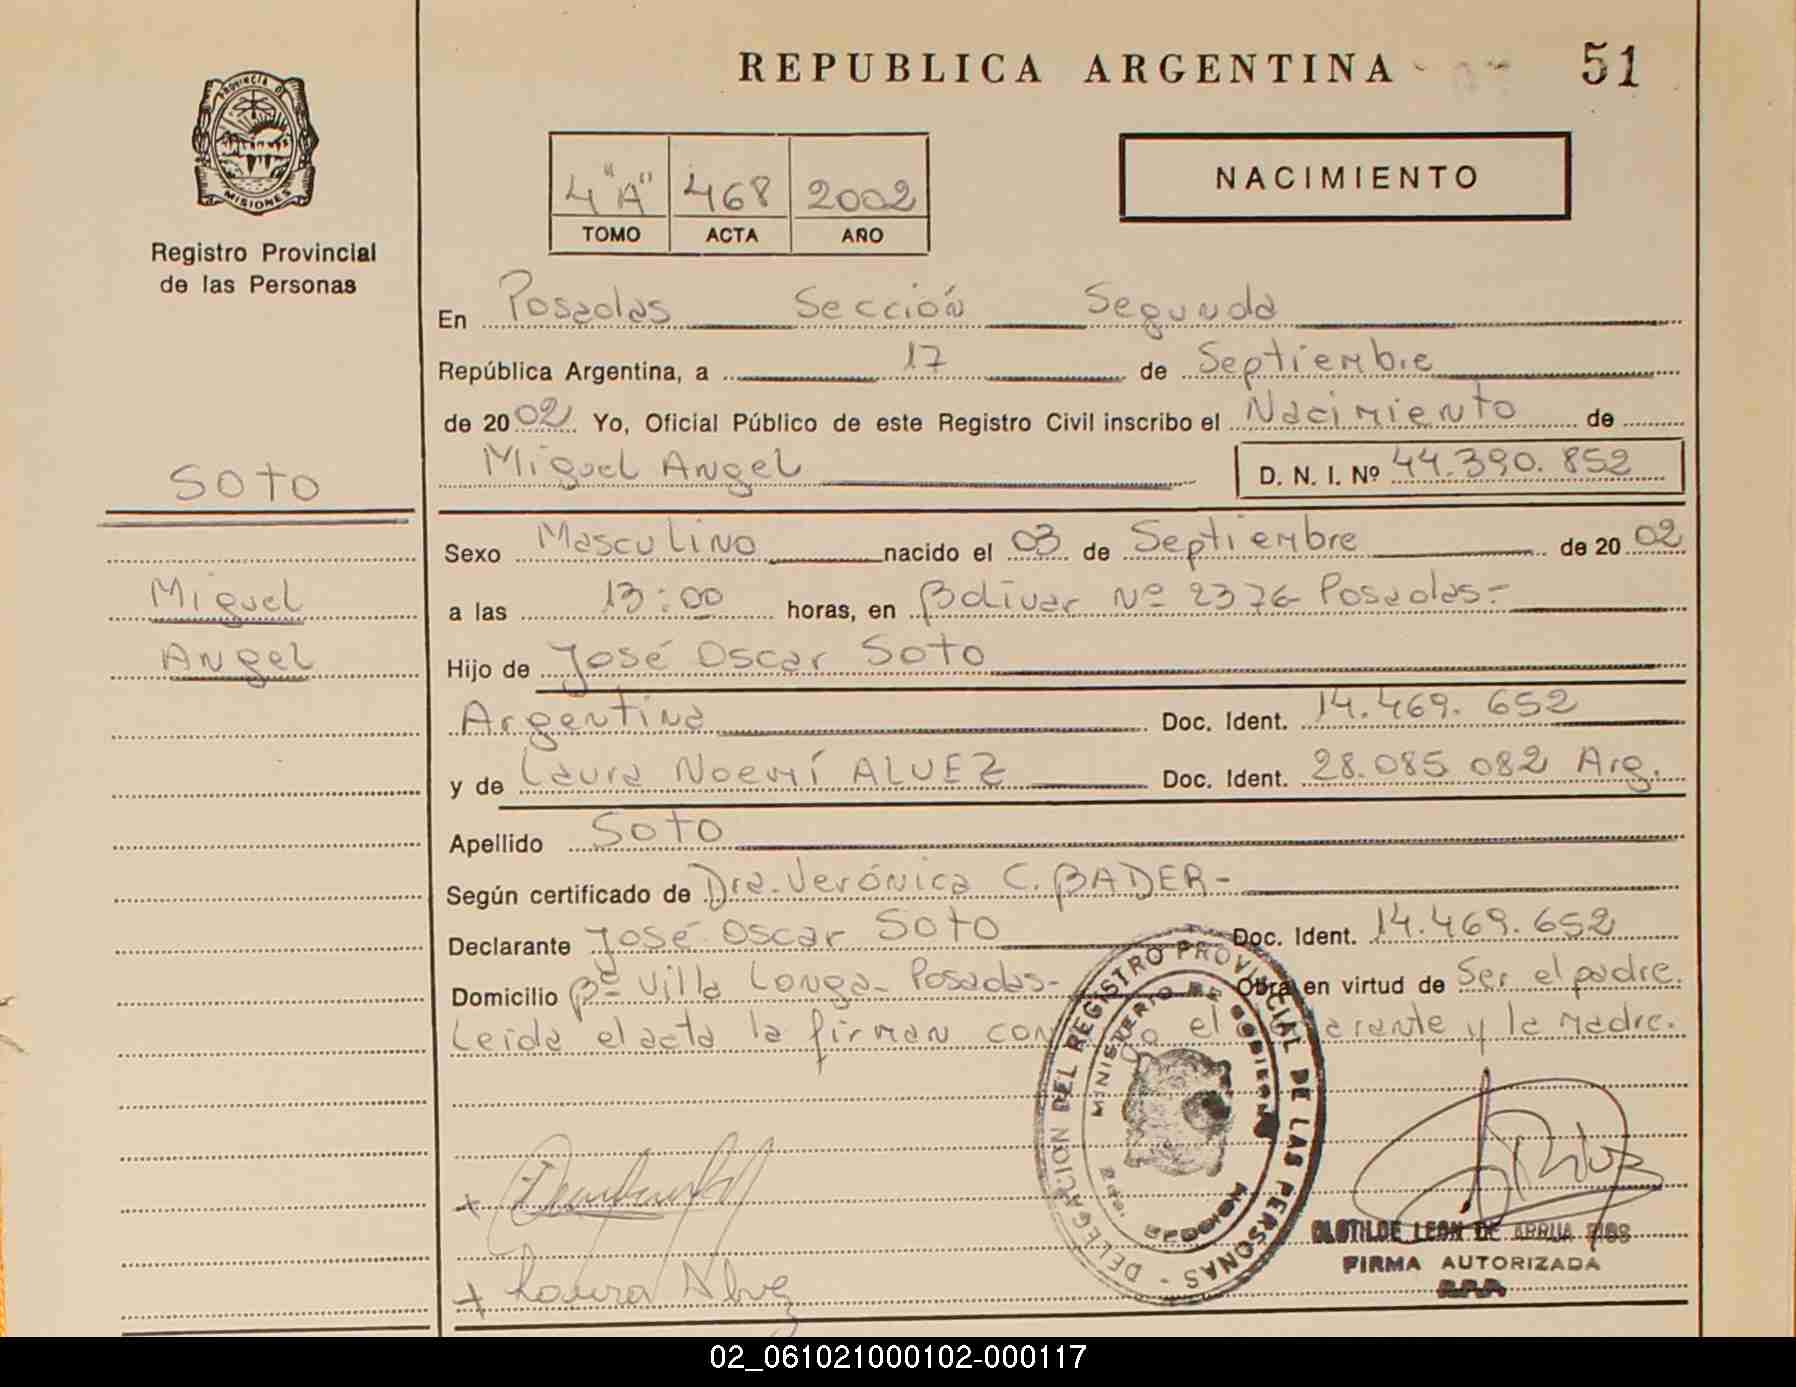 REPUBLICA ARGENTINA
51
PROVINCIA DE
MISIONES
Registro Provincial
de las Personas
4 "A" 468 2002
TOMO ACTA AÑO
NACIMIENTO
En Posadas Sección Segunda
República Argentina, a 17 de Septiembre
de 2002 Yo, Oficial Público de este Registro Civil inscribo el Nacimiento de
Miguel Angel D. N. I. Nº 44.390.852
SOTO
Sexo Masculino nacido el 03 de Septiembre de 2002
Miguel
a las 13:00 horas, en Bolívar Nº 2376 Posadas-
Angel
Hijo de José Oscar SOTO
Argentina Doc. Ident. 14.469.652
y de Laura Noemí ALVEZ Doc. Ident. 28.085.082 Arg.
Apellido SOTO
Según certificado de Dra. Verónica C. BADER-
Declarante José Oscar SOTO Doc. Ident. 14.469.652
Domicilio Bº Villa Longa- Posadas- Obra en virtud de Ser el padre.
Leida el acta la firman el y la Madre.
DELEGACION DEL REGISTRO PROVINCIAL DE LAS PERSONAS -
MINISTERIO DE GOBIERNO
+ Laura Alvez
CLOTILDE LEON DE
FIRMA AUTORIZADA
02_061021000102-000117